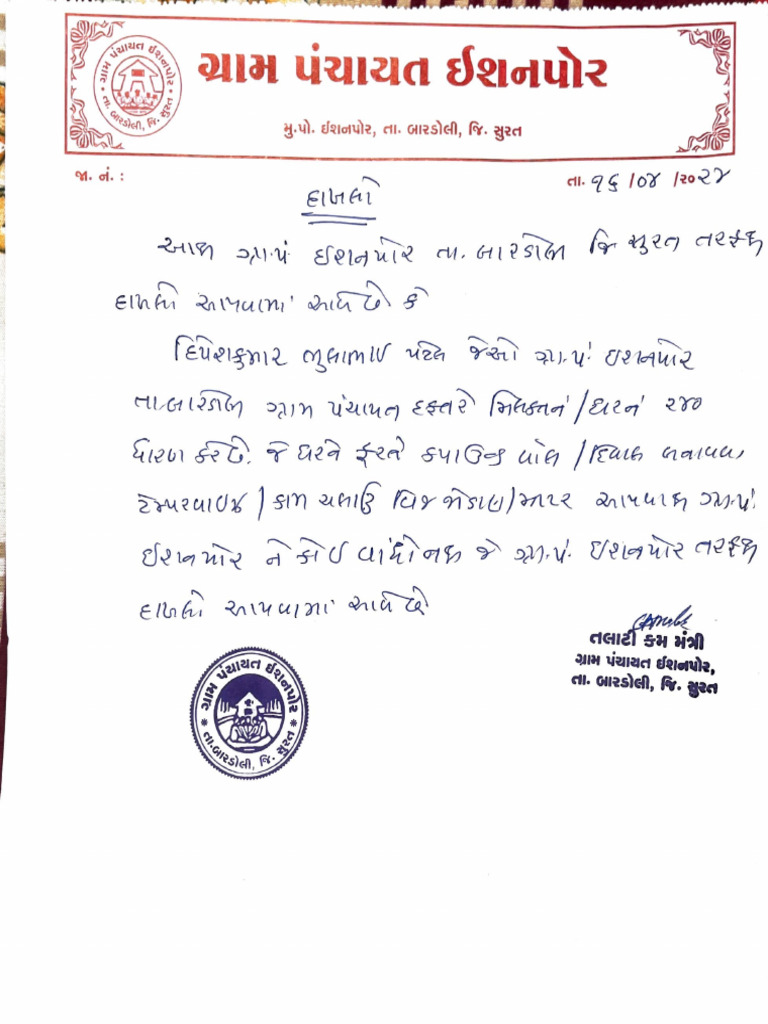 ગ્રામ પંચાયત ઈશનપોર
તા. બારડોલી, જિ. સુરત
ગ્રામ પંચાયત ઈશનપોર
મુ.પો. ઈશનપોર, તા. બારડોલી, જિ. સુરત
જા. નં. :
તા. ૧૬ /૦૪ /૨૦૨૪
દાખલો
આથી ગ્રા.પં. ઈશનપોર તા. બારડોલી જિ સુરત તરફથી
દાખલો આપવામાં આવે છે કે
દિપેશકુમાર ભુલાભાઈ પટેલ જેઓ ગ્રા.પં. ઇશનપોર
તા.બારડોલી ગ્રામ પંચાયત દફતરે મિલ્કતનં/ઘરનં ૨૪૦
ધારણ કરે છે. જે ઘરને ફરતે કમ્પાઉન્ડ વોલ /દિવાલ બનાવવા
ટેમ્પરવાઇઝ /કામ ચલાઉ વિજ જોડાણ/મીટર આપવાથી ગ્રા.પં.
ઈશનપોર ને કોઈ વાંધો નથી જે ગ્રા.પં. ઇશનપોર તરફથી
દાખલો આપવામાં આવે છે
તલાટી કમ મંત્રી
ગ્રામ પંચાયત ઈશનપોર,
તા. બારડોલી, જિ. સુરત
ગ્રામ પંચાયત ઈશનપોર
તા.બારડોલી, જિ. સુરત